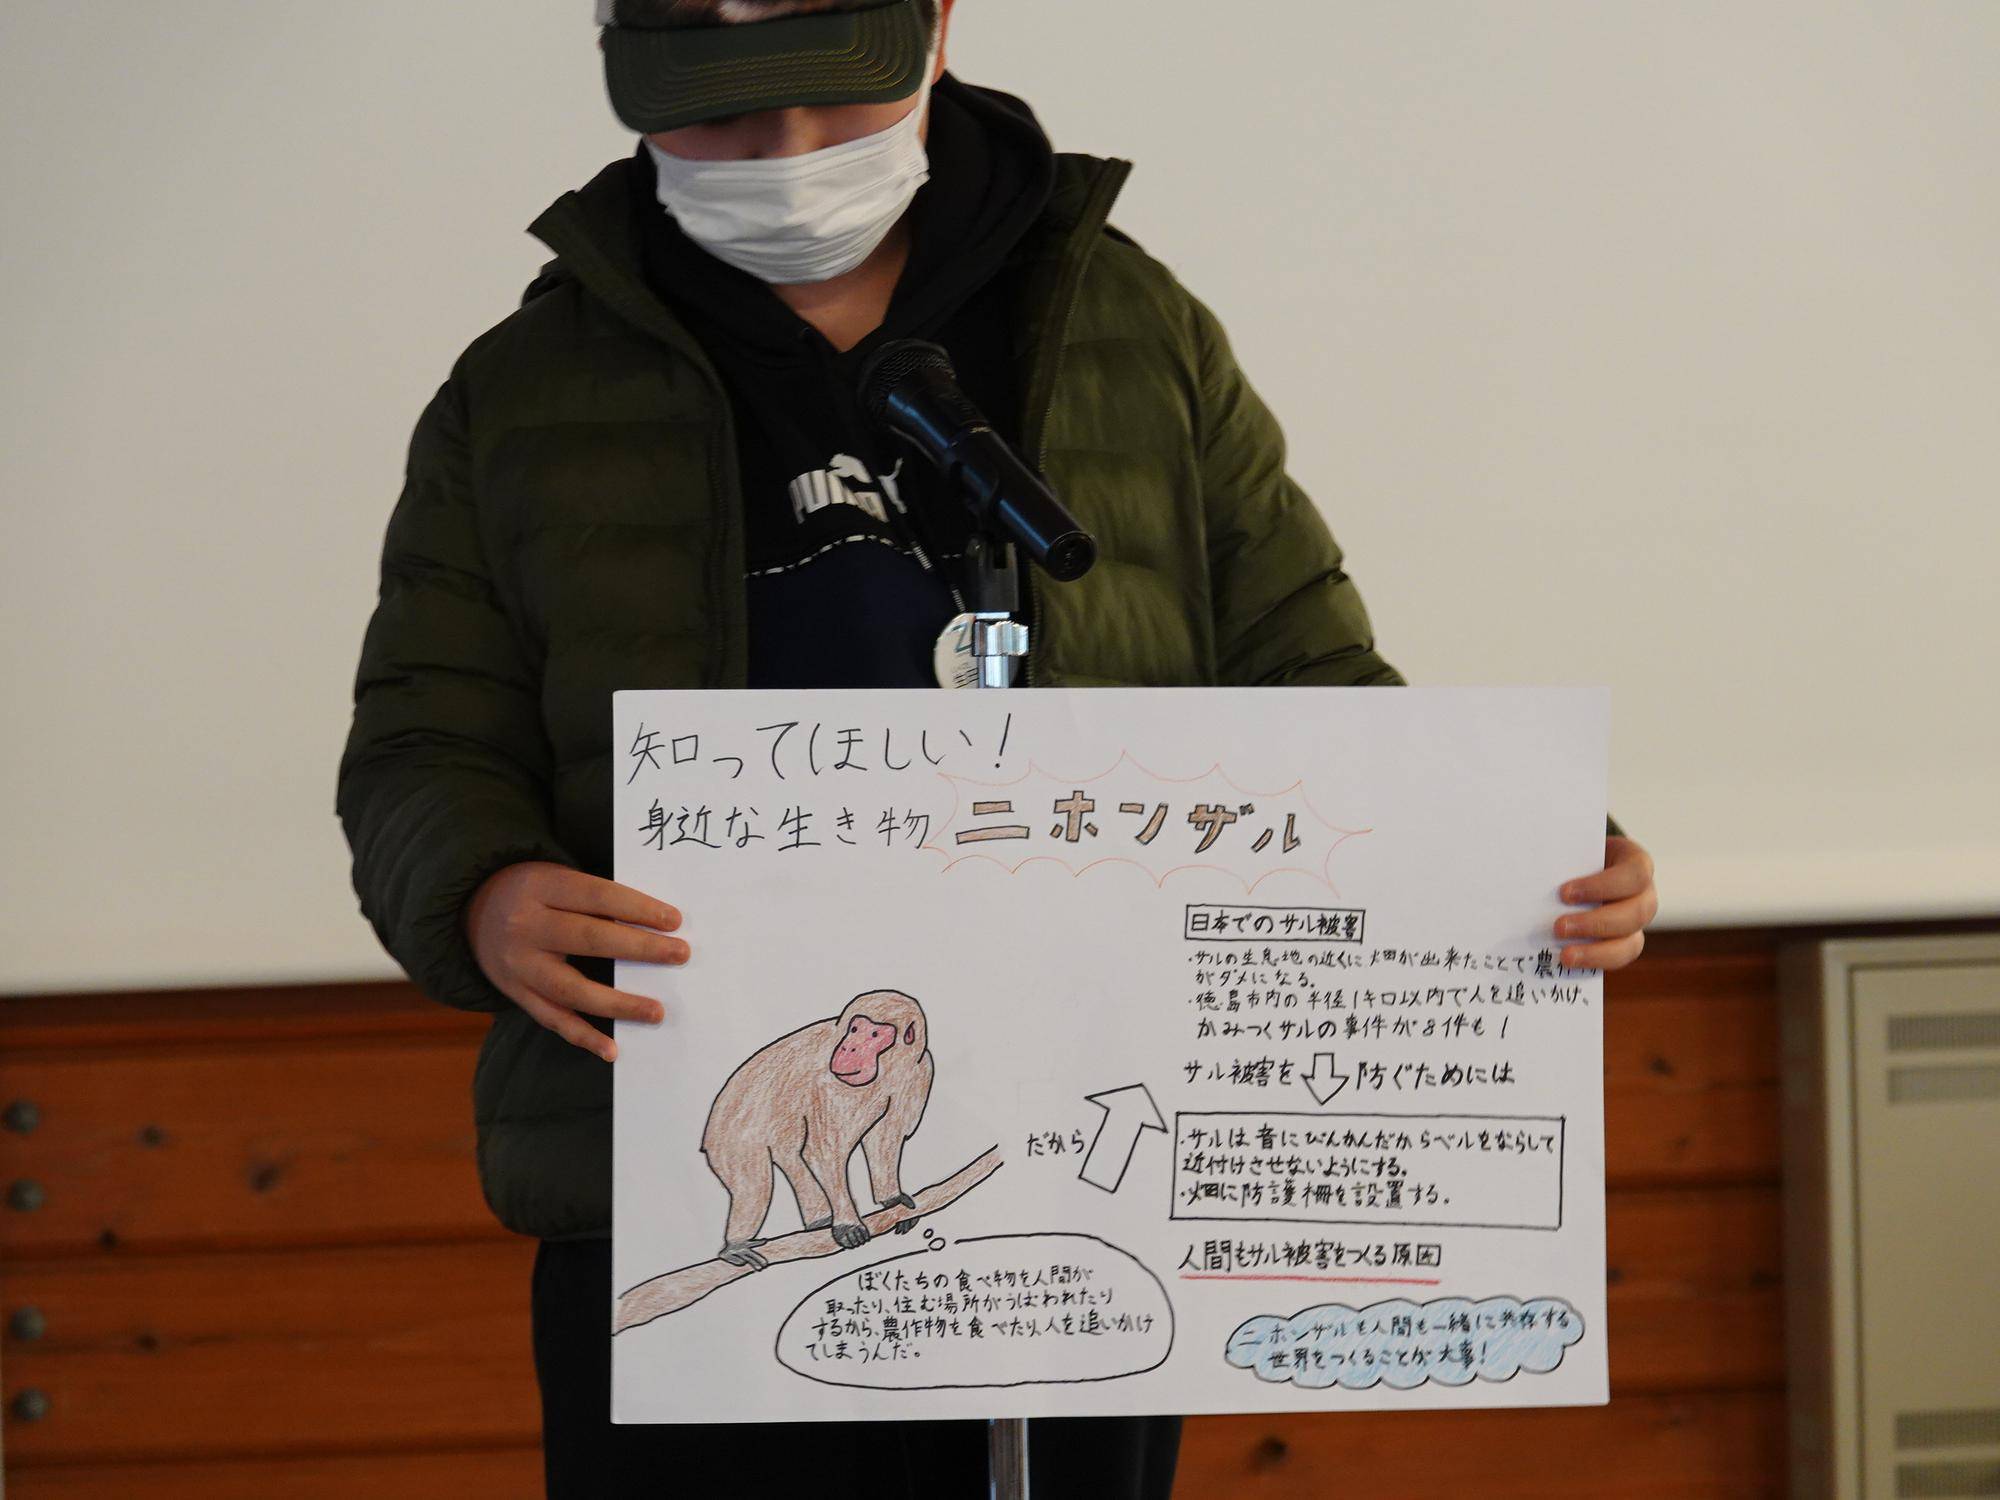 PUMA
知ってほしい!
身近な生き物 ニホンザル
日本でのサル被害
・サルの生息地の近くに畑が出来たことで農作物
がダメになる。
・徳島市内の半径1キロ以内で人を追いかけ、
かみつくサルの事件が8件も!
サル被害を 防ぐためには
だから
・サルは音にびんかんだからベルをならして
近付けさせないようにする。
・畑に防護柵を設置する。
人間もサル被害をつくる原因
ぼくたちの食べ物を人間が
取ったり、住む場所がうばわれたり
するから、農作物を食べたり、人を追いかけ
てしまうんだ。
ニホンザルも人間も一緒に共存する
世界をつくることが大事!